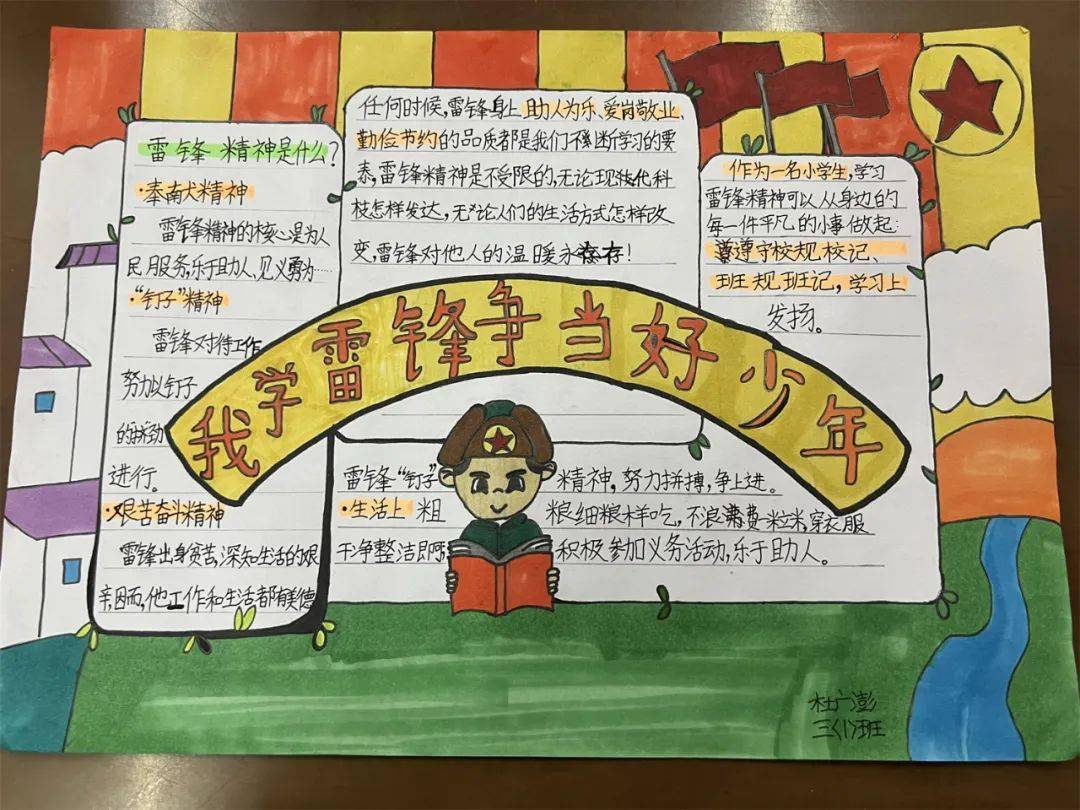 我学雷锋争当好少年
雷锋精神是什么?
·奉献精神
雷锋精神的核心是为人
民服务,乐于助人、见义勇为……
·“钉子”精神
雷锋对待工作
努力以钉子
进行。
·艰苦奋斗精神
雷锋出身贫苦,深知生活的艰
辛,因而,他工作和生活都有美德
任何时候,雷锋身上助人为乐、爱岗敬业、
勤俭节约的品质都是我们不断学习的要
素,雷锋精神是不受限的,无论现代科
技怎样发达,无论人们的生活方式怎样改
变,雷锋对他人的温暖永存!
作为一名小学生,学习
雷锋精神可以从身边的
每一件平凡的小事做起:
遵守校规校记、
班规班记,学习上
发扬。
雷锋“钉子”精神,努力拼搏,争上进。
·生活上 粗粮细粮样吃,不浪费一粒米,穿衣服
干净整洁即可 积极参加义务活动,乐于助人。
杜广澎
三(1)班